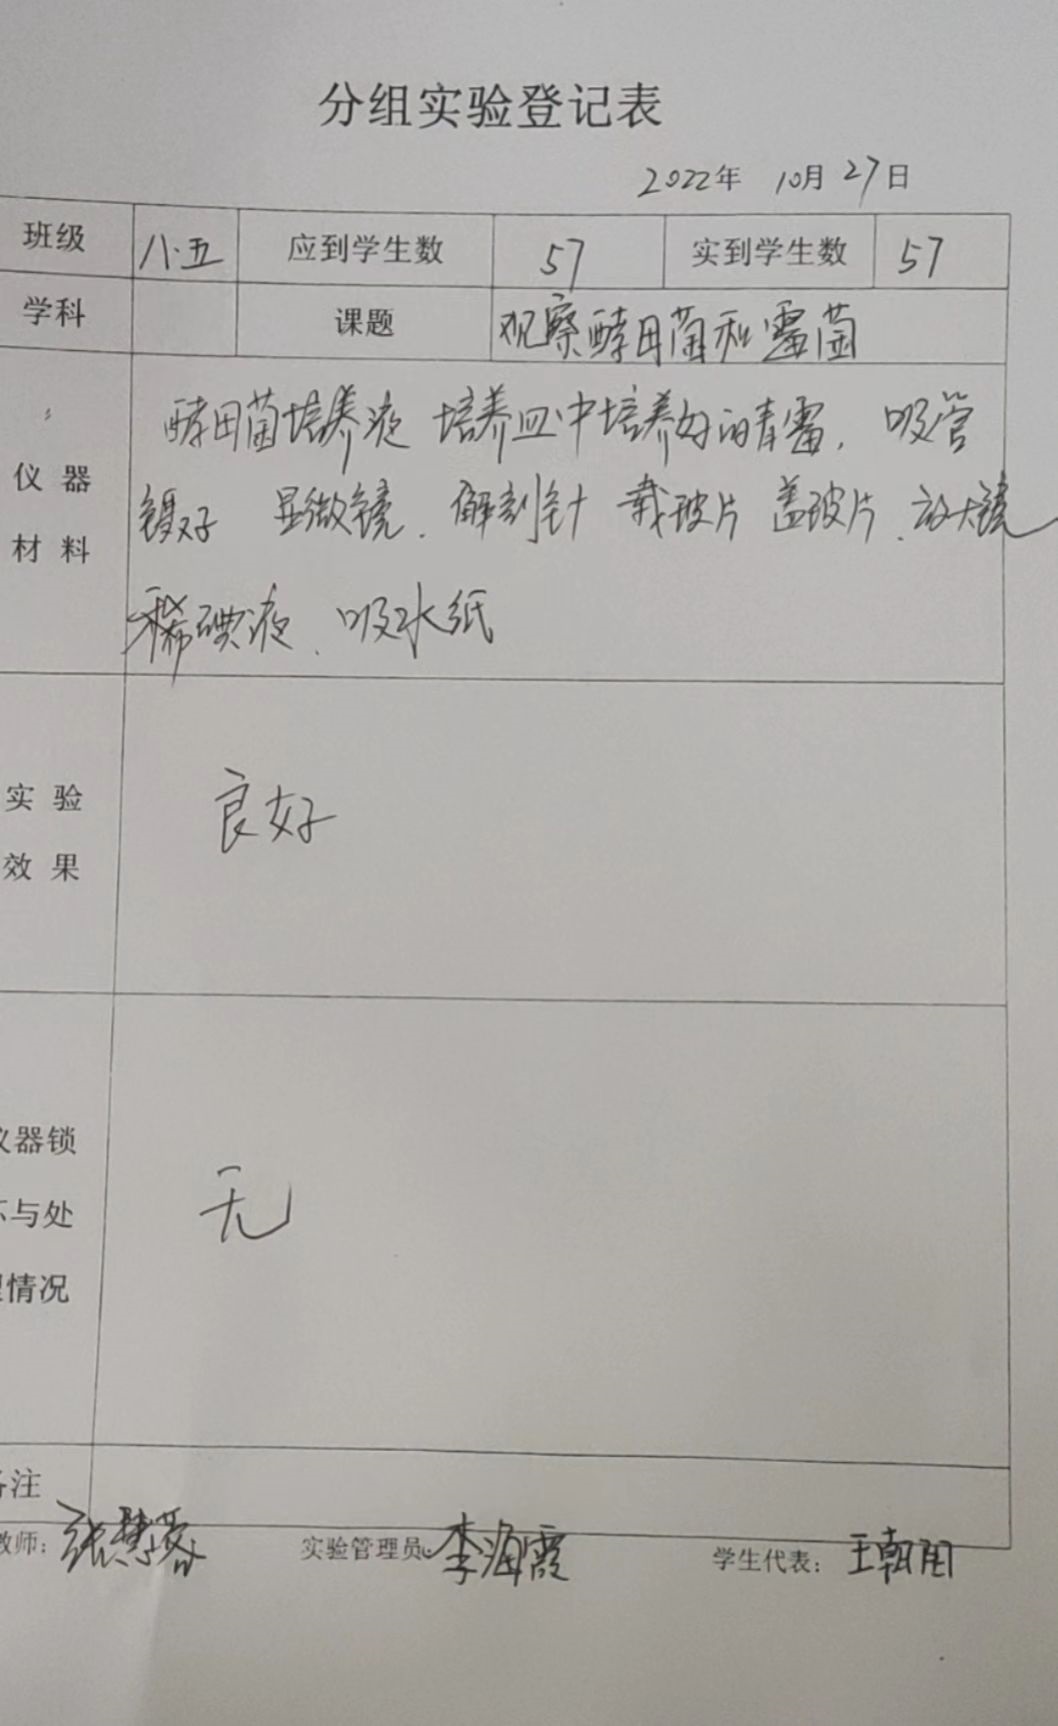 分组实验登记表
2022年 10月27日
班级 八.五 应到学生数 57 实到学生数 57
学科 课题 观察酵母菌和霉菌
酵母菌培养液 培养皿中培养好的青霉. 吸管
仪器 镊子 显微镜. 解剖针 载玻片 盖玻片.放大镜
材料
稀碘液. 吸水纸
实验 良好
效果
仪器锁
坏与处 无
理情况
备注
教师: 张慧 实验管理员: 李海霞 学生代表: 王朝阳